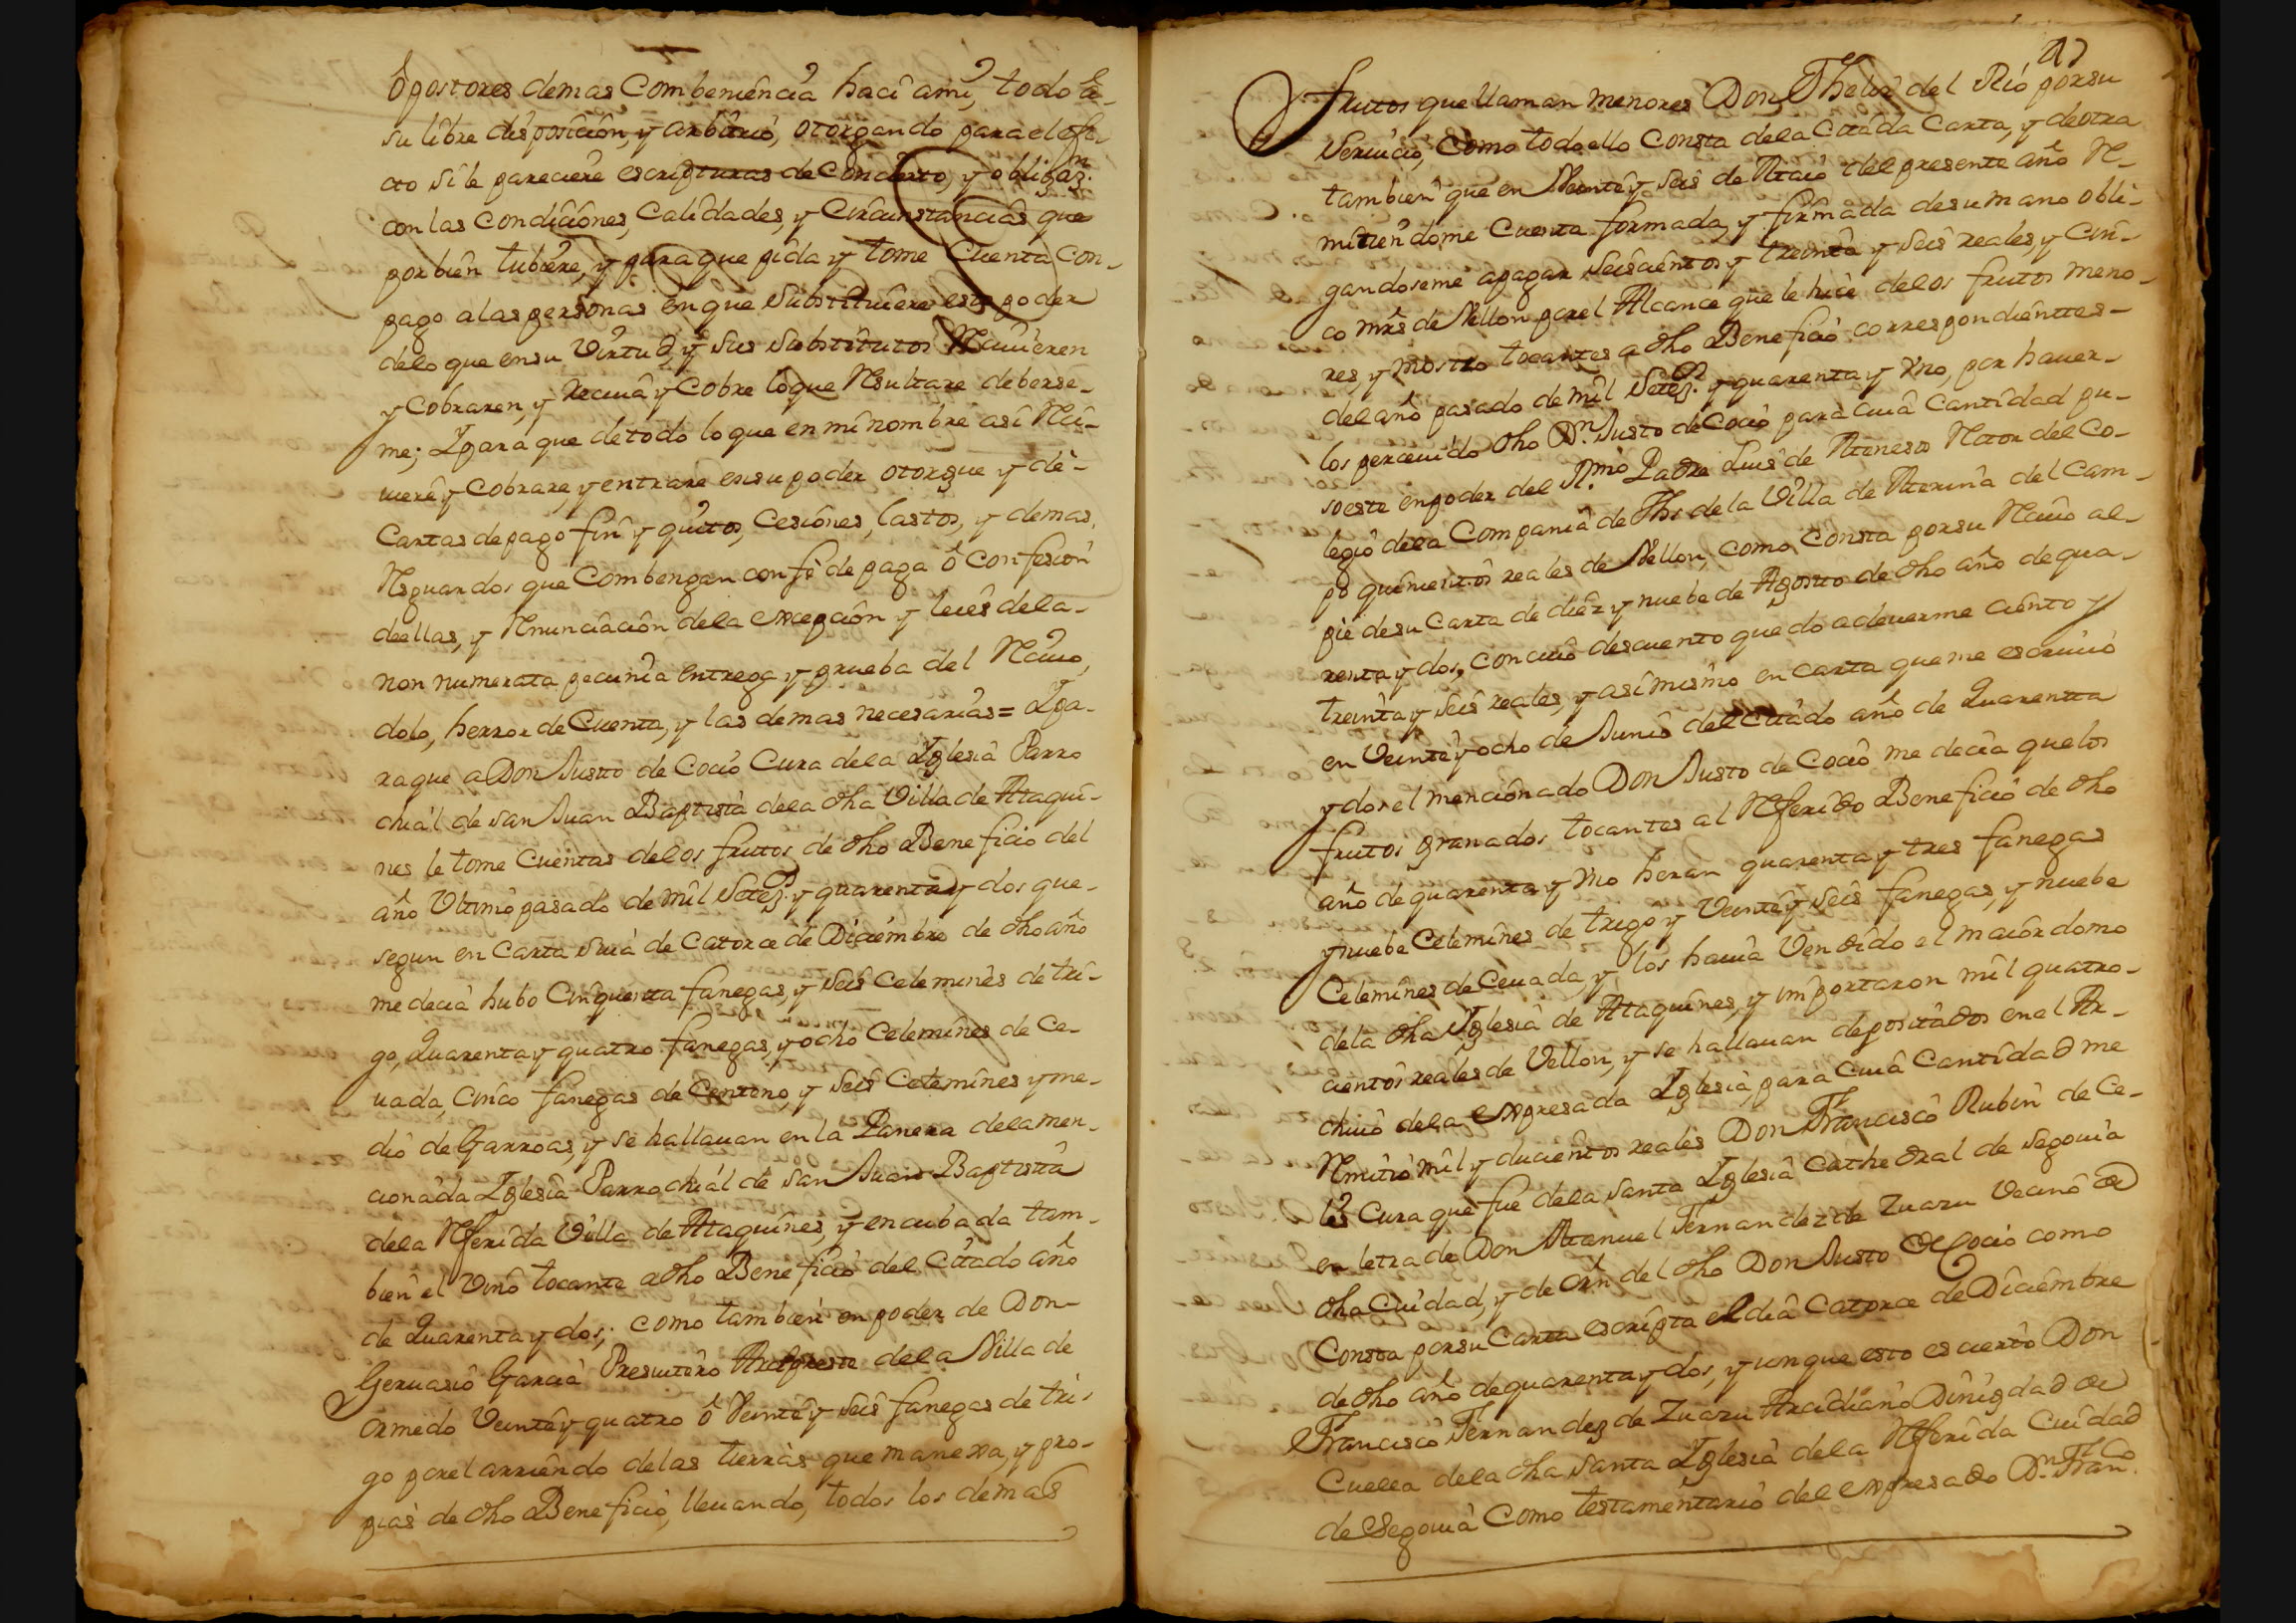 ô postores demas Combeniencia hacî ami, todo â
su libre disposicion, y arbitrio, otorgando para el efe-
cto si le pareciere escripturas de Concierto, y obligaz.n
con las condiciones, Calidades, y Circunstancias que
por bien tubiere, y para que pida y tome Cuenta con-
pago a las personas en que Substituiere este poder
delo que en su Virtud, y sus Substitutos Reciuieren
y Cobraren, y reciua y Cobre lo que Resultare deberse-
me; Y para que de todo lo que en mi nombre asi Reci-
uiere y Cobrare, y entrare en su poder otorgue y dè
Cartas de pago fin y quitos, Cesiones, lastos, y demas
Resguardos que Combengan con feè de paga ô Confesion
de ellas, y Renunciacion dela excepcion y leies dela
non numerata pecunia entrega y prueba del Reciuo,
dolo, herror de Cuenta, y las demas necesarias = Y pa-
ra que a Don Justo de Cocio Cura dela Yglesia Parro
chial de San Juan Baptista dela dha Villa de Ataqui-
nes le tome Cuentas delos frutos de dho Beneficio del
año Ultimo pasado de mil Setez.s y quarenta y dos que
segun en Carta suia de Catorce de Diciembre de dho año
me decia hubo Cinquenta fanegas, y seis Celemines de tri-
go, Quarenta y quatro fanegas, y ocho Celemines de Ce-
uada, Cinco fanegas de Centeno, y Seis Celemines y me-
dio de Garroas, y se hallauan en la Panera dela men-
cionada Yglesia Parrochial de San Juan Baptista
dela Referida Villa de Ataquines, y encubada tam-
bien el Vino tocante a dho Beneficio del Citado año
de Quarenta y dos; como tambien en poder de Don
Geruasio Garcia Presuitero Arcipreste dela Villa de
Olmedo Veinte y quatro ô Veinte y Seis fanegas de tri-
go por el arriendo delas tierras que manexa, y pro-
pias de dho Beneficio, lleuando, todos los demas
47
frutos que llaman menores Don Thelmo del Rio por su
Seruicio, Como todo ello Consta dela Citada Carta, y de otra
tambien que en Veinte y Seis de Maio del presente año Re-
mitiendome Cuenta formada, y firmada de su mano obli-
gandoseme a pagar Seiscientos y treinta y Seis reales, y Cin-
co mrs de Vellon por el Alcance que le hice delos frutos meno-
res, y mosto tocantes a dho Beneficio correspondienttes
del año pasado de mil Setez.s y quarenta y Vno, por hauer-
los perceuido dho Dn. Justo de Cocio para cuia Cantidad pu-
so este en poder del R.mo Padre Luis de Meneses Retor del Co-
legio dela Compania de Jhs de la Villa de Medina del Cam-
po quinientos reales de Vellon, como Consta por su Reciuo al
pie de su Carta de diez y nuebe de Agosto de dho año de qua-
renta y dos, con cuio descuento quedo a deuerme ciento y
treinta y Seis reales, y asi mismo en carta que me escriuio
en Veinte y ocho de Junio del Citado año de Quarentta
y dos el mencionado Don Justo de Cocio me decia que los
frutos granados tocantes al Referido Beneficio de dho
año de quarenta y Vno heran quarenta y tres fanegas
y nuebe Celemines de trigo y Veinte y Seis fanegas, y nuebe
Celemines de Ceuada, y los hauia Vendido el maiordomo
dela dha Yglesia de Ataquines, y importaron mil quatro-
cientos reales de Vellon, y se hallauan depositados en el Ar-
chiuo dela expresada Yglesia, para Cuia Cantidad me
Remitio mil y ducientos reales Don Francisco Rubin de Ce-
lis Cura que fue dela Santa Yglesia Cathedral de Segouia
en letra de Don Manuel Fernandez de Zuazu Vecino de
dha Ciudad, y de orn del dho Don Justo de Cocio como
Consta por su Carta escripta el dia Catorce de Diciembre
de dho año de quarenta y dos, y aunque esto es cierto Don
Francisco Fernandez de Zuazu Arcidiano Dinigdad de
Cuella dela dha Santa Yglesia dela Referida Ciudad
de Segouia Como testamentario del expresado Dn. Fran.co